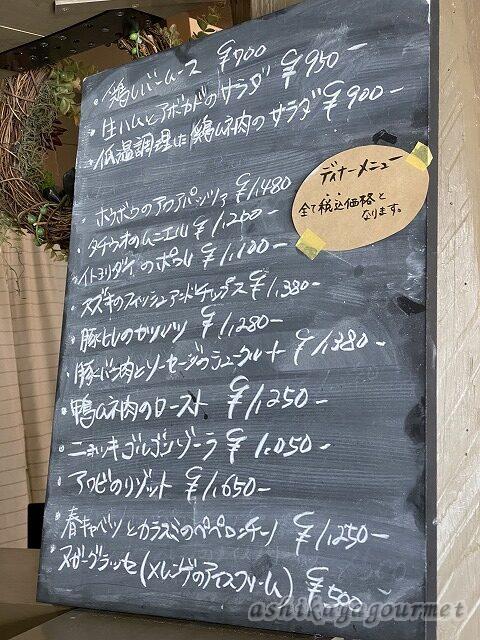 ・鶏レバームース ¥700
・生ハムとアボカドのサラダ ¥950-
・低温調理した鶏ムネ肉のサラダ ¥900-
・ホウボウのアクアパッツァ ¥1,480
・タチウオのムニエル ¥1,200-
・イトヨリダイのポワレ ¥1,100-
・スズキのフィッシュアンドチップス ¥1,380-
・豚ヒレのカツレツ ¥1,280-
・豚バラ肉とソーセージのシュークルート ¥1,380-
・鴨ムネ肉のロースト ¥1,250-
・ニョッキゴルゴンゾーラ ¥1,050-
・アワビのリゾット ¥1,650-
・春キャベツとカラスミのペペロンチーノ ¥1,250-
・ヌガーグラッセ(メレンゲのアイスクリーム) ¥500-
ディナーメニュー
全て税込価格と
なります。
ashikagagourmet